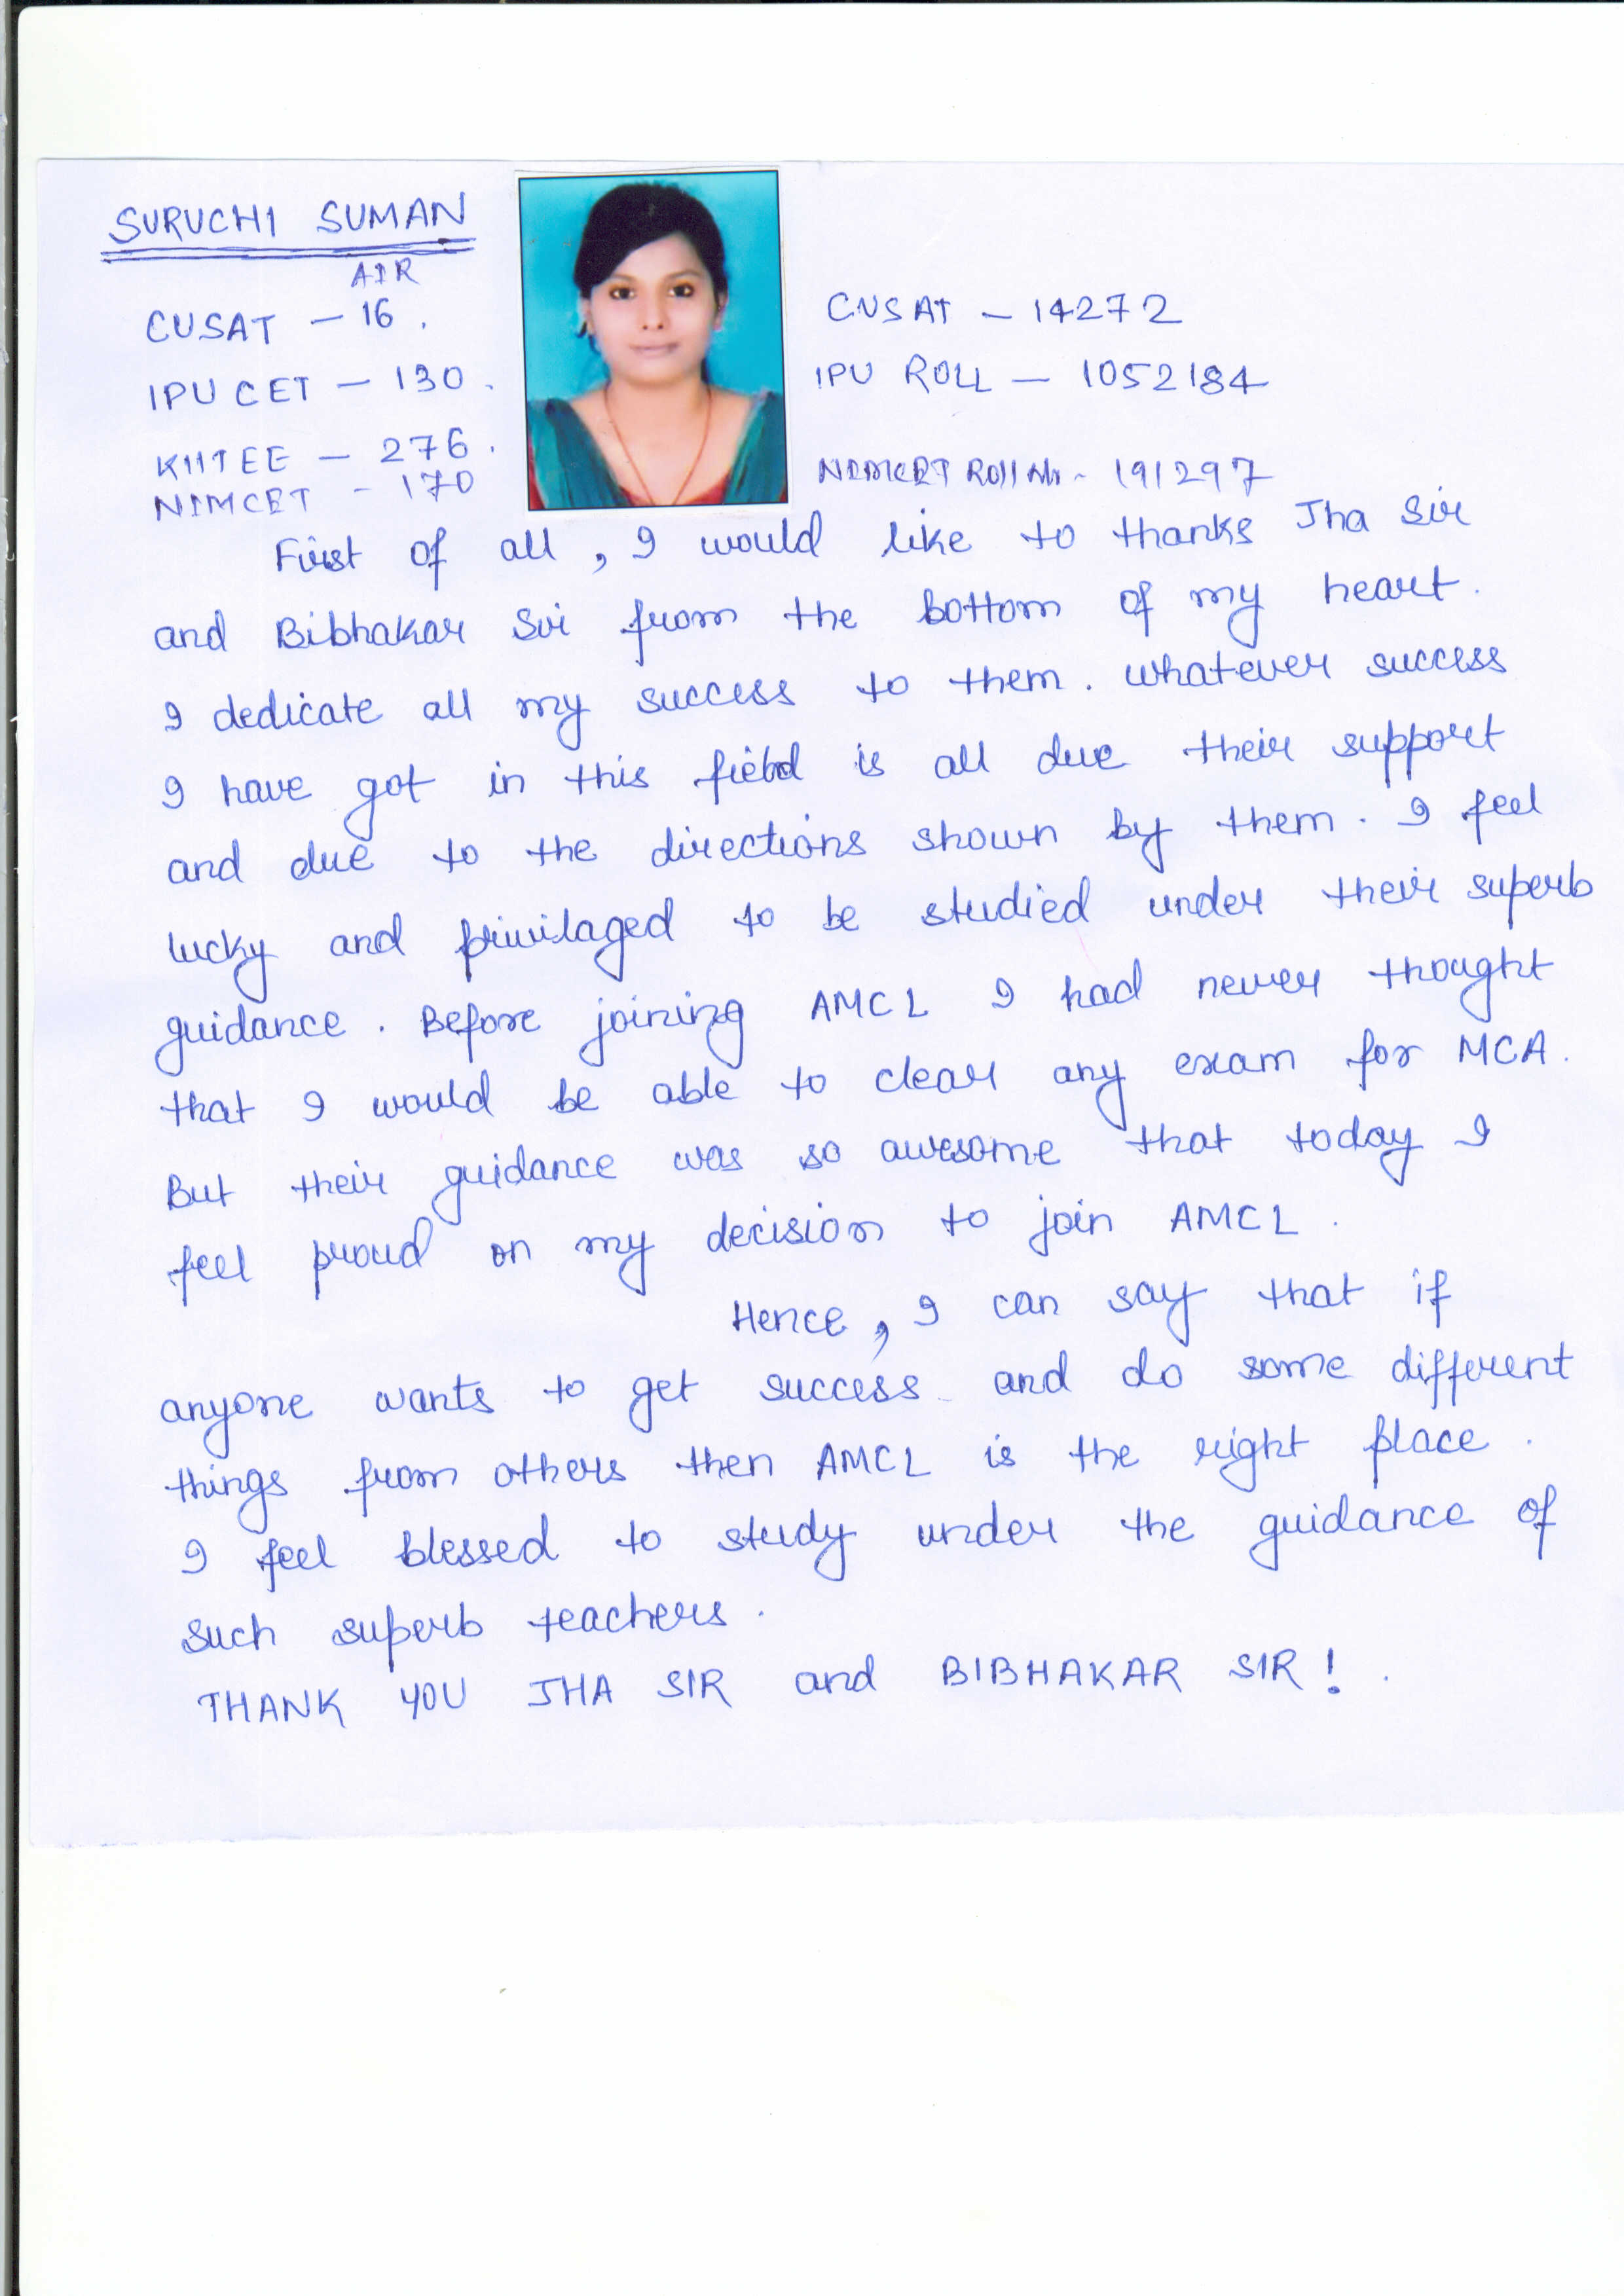 SURUCHI SUMAN
AIR
CUSAT – 16 .
IPU CET – 130 .
KIITEE – 276 .
NIMCET - 170
CUSAT – 14272
IPU ROLL – 1052184
NIMCET Roll No - 191297
First of all , I would like to thanks Jha Sir
and Bibhakar Sir from the bottom of my heart .
I dedicate all my success to them . whatever success
I have got in this field is all due their support
and due to the directions shown by them . I feel
lucky and privilaged to be studied under their superb
guidance . Before joining AMCL I had never thought
that I would be able to clear any exam for MCA .
But their guidance was so awesome that today I
feel proud on my decision to join AMCL .
Hence , I can say that if
anyone wants to get success and do some different
things from others then AMCL is the right place .
I feel blessed to study under the guidance of
such superb teachers .
THANK YOU JHA SIR and BIBHAKAR SIR ! .